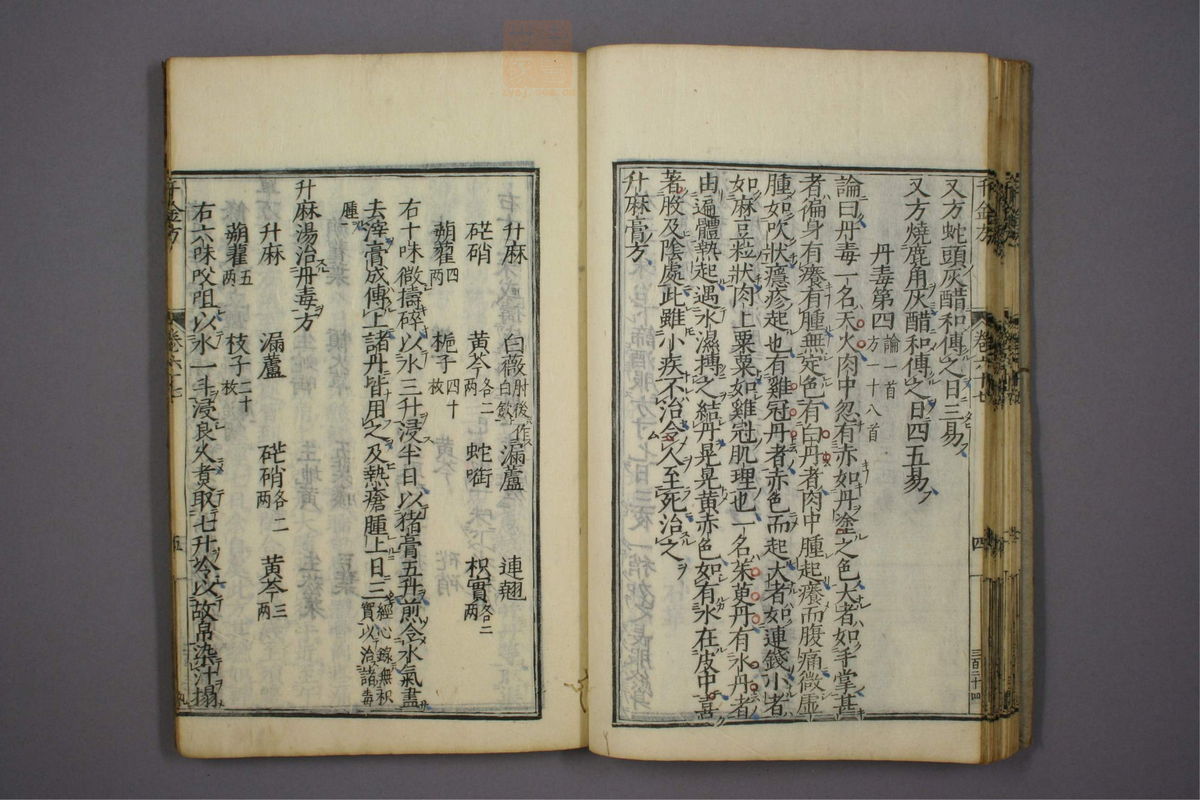 千金方 卷六十七 四 三百三十四
又方蛇頭灰醋和傅之日三易
又方燒鹿角灰醋和傅之日四五易
丹毒第四 論一首 方一十八首
論曰丹毒一名天火肉中忽有赤如丹塗之色大者如手掌甚
者徧身有癢有腫無定色有白丹者肉中腫起癢而腹痛微虛
腫如吹狀癮疹起也有雞冠丹者赤色而起大者如連錢小者
如麻豆粒狀肉上粟粟如雞冠肌理也一名茱萸丹有水丹者
由遍體熱起遇水濕搏之結丹晃晃黃赤色如有水在皮中喜
著股及陰處此雖小疾不治令人至死治之
升麻膏方
升麻 白薇肘後作白斂 漏蘆 連翹
硭硝 黃芩各二兩 蛇銜 枳實各三兩
蒴藋四兩 梔子四十枚
右十味微擣碎以水三升浸半日以猪膏五升煎令水氣盡
去滓膏成傅上諸丹皆用之及熱瘡腫上日三經心錄無枳實以治諸毒
腫
升麻湯治丹毒方
升麻 漏蘆 硭硝各二兩 黃芩三兩
蒴藋五兩 枝子二十枚
右六味㕮咀以水一斗浸良久煮取七升冷以故帛染汁搨
千金方 卷六十七 五